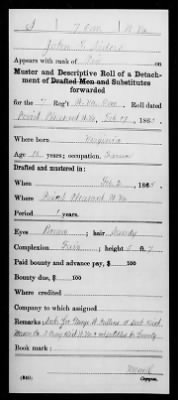 S 7 Cav W. Va.
John S.
Appears with rank of Pvt.
Muster and Descriptive Roll of a Detach-
ment of Drafted Men and Substitutes
forwarded
for the 7 Reg't W. Va. Cav. Roll dated
Point Pleasant W. Va. Feb 17, 1865
Where born Virginia
Age years; occupation, Farmer
Drafted and mustered in:
When Feb 2, 1865
Where Point Pleasant W. Va.
Period 1 years.
Eyes Brown; hair Sandy
Complexion Fair; height 5 ft 7
Paid bounty and advance pay, $ /100
Bounty due, $ /100
Where credited
Company to which assigned
Remarks Sub. for George W. Dist
Mason Co. 3 Cong Dist W. Va. County
Book mark:
(340) Copyist.